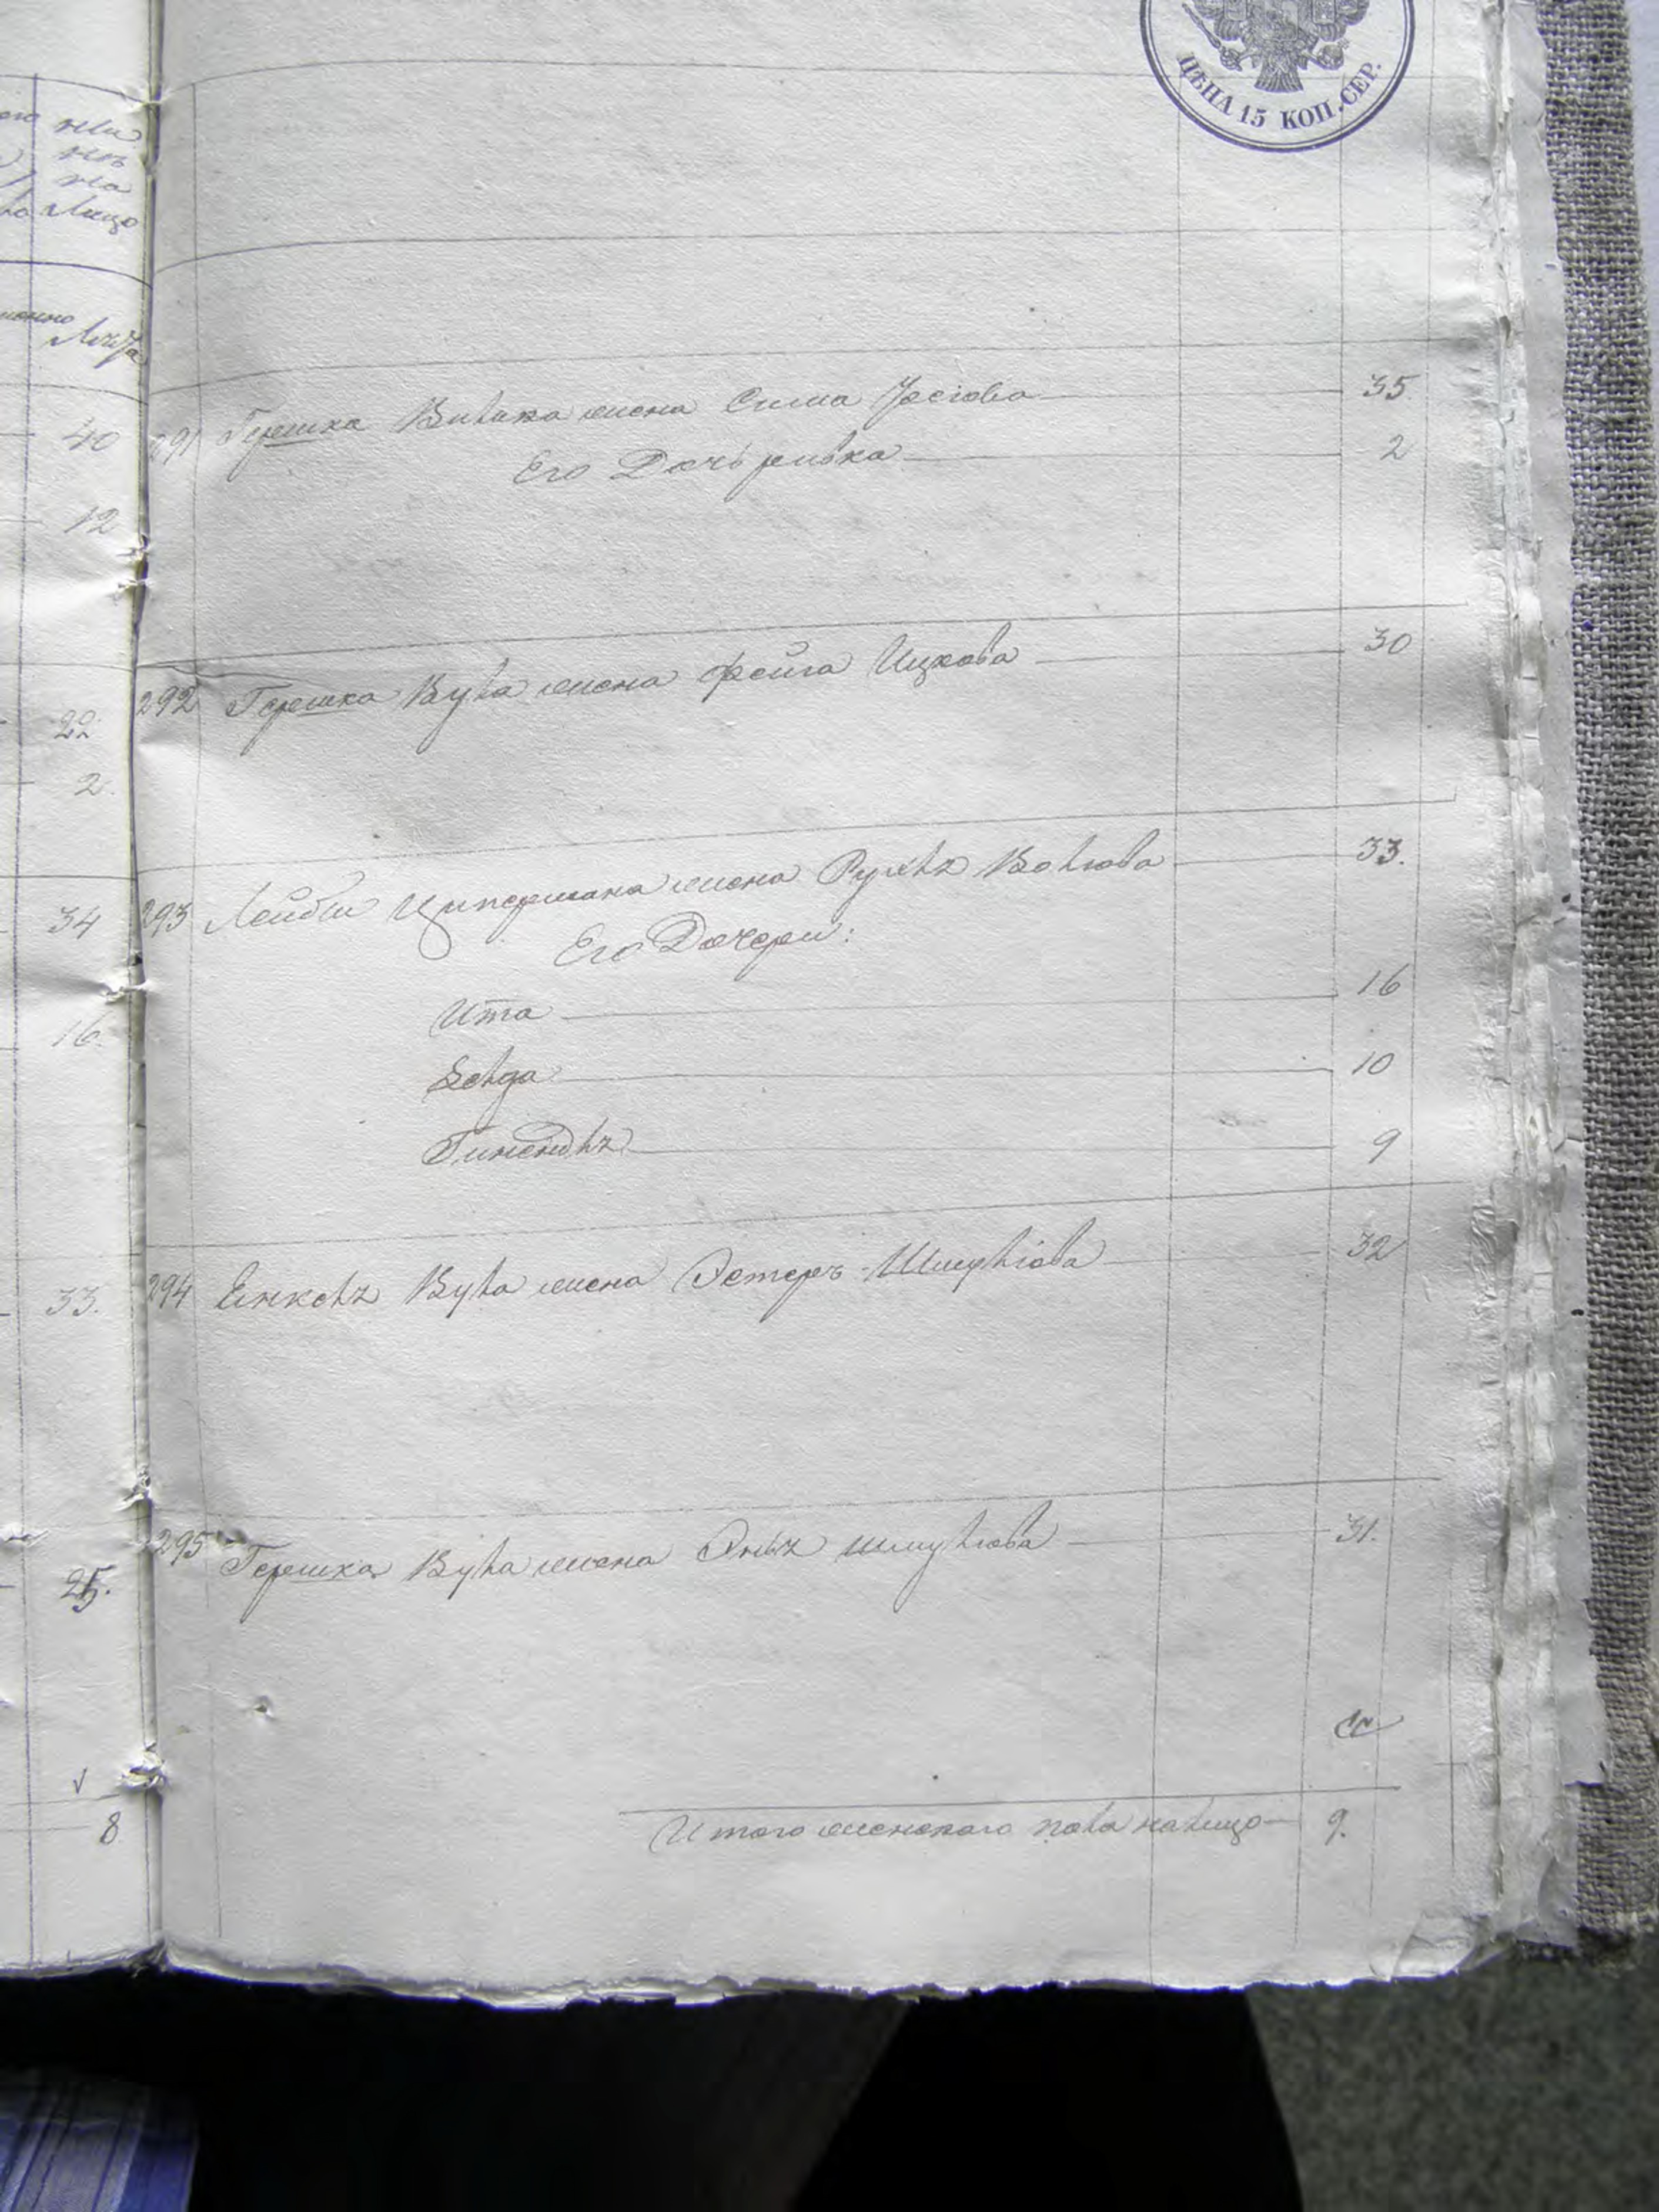 ЦѢНА 15 КОП. СЕР.
нли
на
лицо
Лѣта
40
12
22
2.
34
16.
33.
25.
8
291 Гершка Билика жена Сима Іосіова 35
Его Дочь ривка 2
292 Гершка Вула жена фейга Ицкова 30
293 Лейбы Ципермана жена Рухль Волкова 33.
Его Дочери:
Ита 16
Зелда 10
Гинендль 9
294 Енкель Вула жена Эстеръ Шмулiова 32
295 Гершка Вула жена шмулiова 31.
Итого женского пола налицо 9.